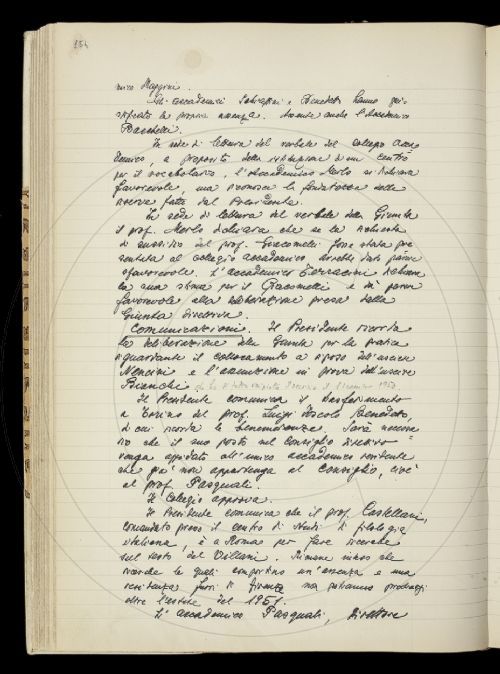 154
nico Maggini.
Gli accademici Schiaffini e Benedetto hanno giu-
stificato la propria assenza. Assente anche l'Accademico
Bacchelli.
In sede di lettura del verbale del collegio acca-
demico, a proposito della istituzione di un centro
per il vocabolario, l'Accademico Merlo si dichiara
favorevole, ma riconosce la fondatezza delle
riserve fatte dal Presidente.
In sede di lettura del verbale della Giunta
il prof. Merlo dichiara che se la richiesta
di sussidio del prof. Giacomelli fosse stata pre-
sentata al collegio accademico avrebbe dato parere
sfavorevole. L'accademico Terracini dichiara
la sua stima per il Giacomelli e dà parere
favorevole alla deliberazione presa dalla
Giunta direttiva.
Comunicazioni. Il Presidente ricorda
la deliberazione della Giunta per la pratica
riguardante il collocamento a riposo dell'usciere
Nencini e l'assunzione in prova dell'usciere
Bianchi
Il Presidente comunica il trasferimento
a Torino del prof. Luigi Foscolo Benedetto,
di cui ricorda le benemerenze. Sarà necessa-
rio che il suo posto nel Consiglio direttivo
venga affidato all'unico accademico residente
che già non appartenga al Consiglio, cioè
al prof. Pasquali.
Il Collegio approva.
Il Presidente comunica che il prof. Castellani,
comandato presso il centro di studi di filologia
italiana, è a Roma per fare ricerche
sul testo del Villani. Rimane inteso che
ricerche le quali comportino un'assenza e una
residenza fuori di Firenze non potranno prolungarsi
oltre l'estate del 1951.
L'accademico Pasquali, direttore